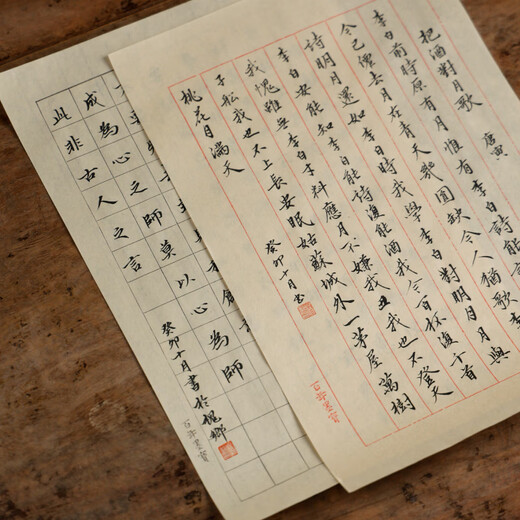 把酒對月歌 唐寅
李白前時原有月惟有李白詩能
今已僊去月在青天幾圓缺今人猶歌李
詩明月還如李白時我學李白對明月月與
李白安能知李白能詩復能酒我今百杯復千首
我愧雖無李白才料應月不嫌我丑我也不登天
子船我也不上長安眠姑蘇城外一茅屋萬樹
桃花月滿天
癸卯十月書
百年墨寶
成為心之師莫以心為師
此非古人之言
癸卯十月書於槐鄉
百年墨寶